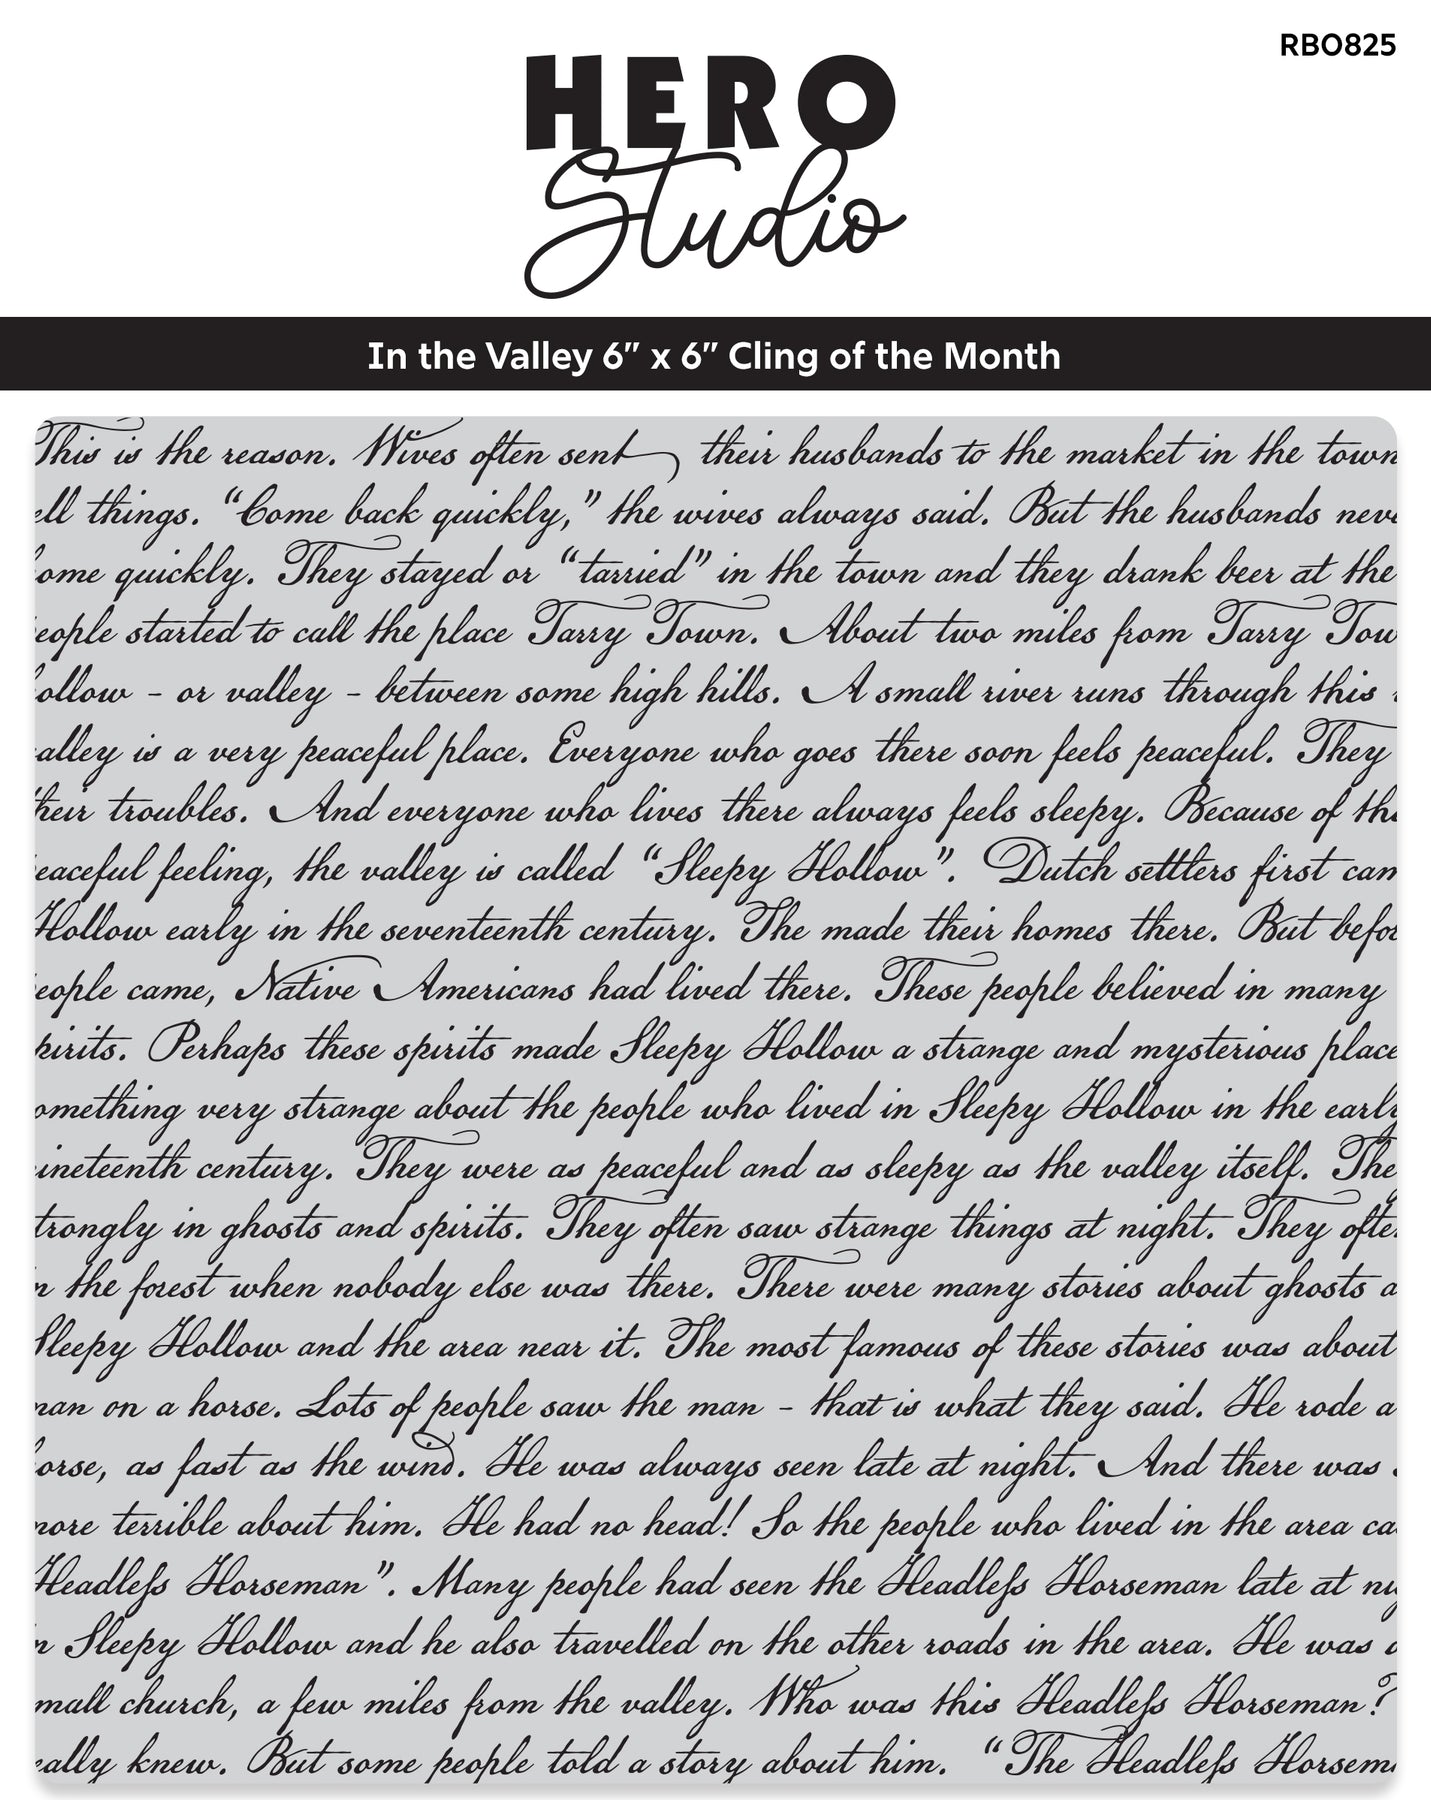 RBO825
HERO
Studio
In the Valley 6” x 6” Cling of the Month
This is the reason. Wives often sent their husbands to the market in the town
ell things. “Come back quickly,” the wives always said. But the husbands neve
ome quickly. They stayed or “tarried” in the town and they drank beer at the
eople started to call the place Tarry Town. About two miles from Tarry Tow
ollow - or valley - between some high hills. A small river runs through this
alley is a very peaceful place. Everyone who goes there soon feels peaceful. They
their troubles. And everyone who lives there always feels sleepy. Because of th
eaceful feeling, the valley is called “Sleepy Hollow”. Dutch settlers first cam
Hollow early in the seventeenth century. The made their homes there. But befor
eople came, Native Americans had lived there. These people believed in many
pirits. Perhaps these spirits made Sleepy Hollow a strange and mysterious place
omething very strange about the people who lived in Sleepy Hollow in the early
ineteenth century. They were as peaceful and as sleepy as the valley itself. The
trongly in ghosts and spirits. They often saw strange things at night. They ofte
n the forest when nobody else was there. There were many stories about ghosts a
Sleepy Hollow and the area near it. The most famous of these stories was about
man on a horse. Lots of people saw the man - that is what they said. He rode a
orse, as fast as the wind. He was always seen late at night. And there was
more terrible about him. He had no head! So the people who lived in the area ca
Headleſs Horseman”. Many people had seen the Headleſs Horseman late at nig
n Sleepy Hollow and he also travelled on the other roads in the area. He was
mall church, a few miles from the valley. Who was this Headleſs Horseman?
eally knew. But some people told a story about him. “The Headleſs Horsem